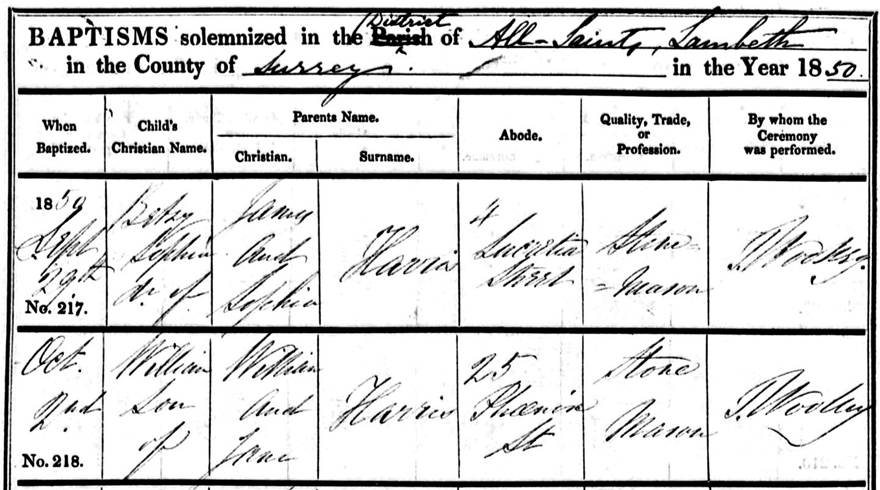 BAPTISMS solemnized in the Parish District of All-Saints, Lambeth
in the County of Surrey in the Year 1850.
When Baptized.
Child's Christian Name.
Parents Name.
Christian.
Surname.
Abode.
Quality, Trade, or Profession.
By whom the Ceremony was performed.
1850
Sept
29th
No. 217.
Betsy
Sophia
dr. of
James
and
Sophia
Harris
4
Lucretia
Street
Stone-
=Mason
T. Woolley.
Oct.
2nd
No. 218.
William
Son
of
William
and
Jane
Harris
25
Phoenix
St
Stone
Mason
T. Woolley